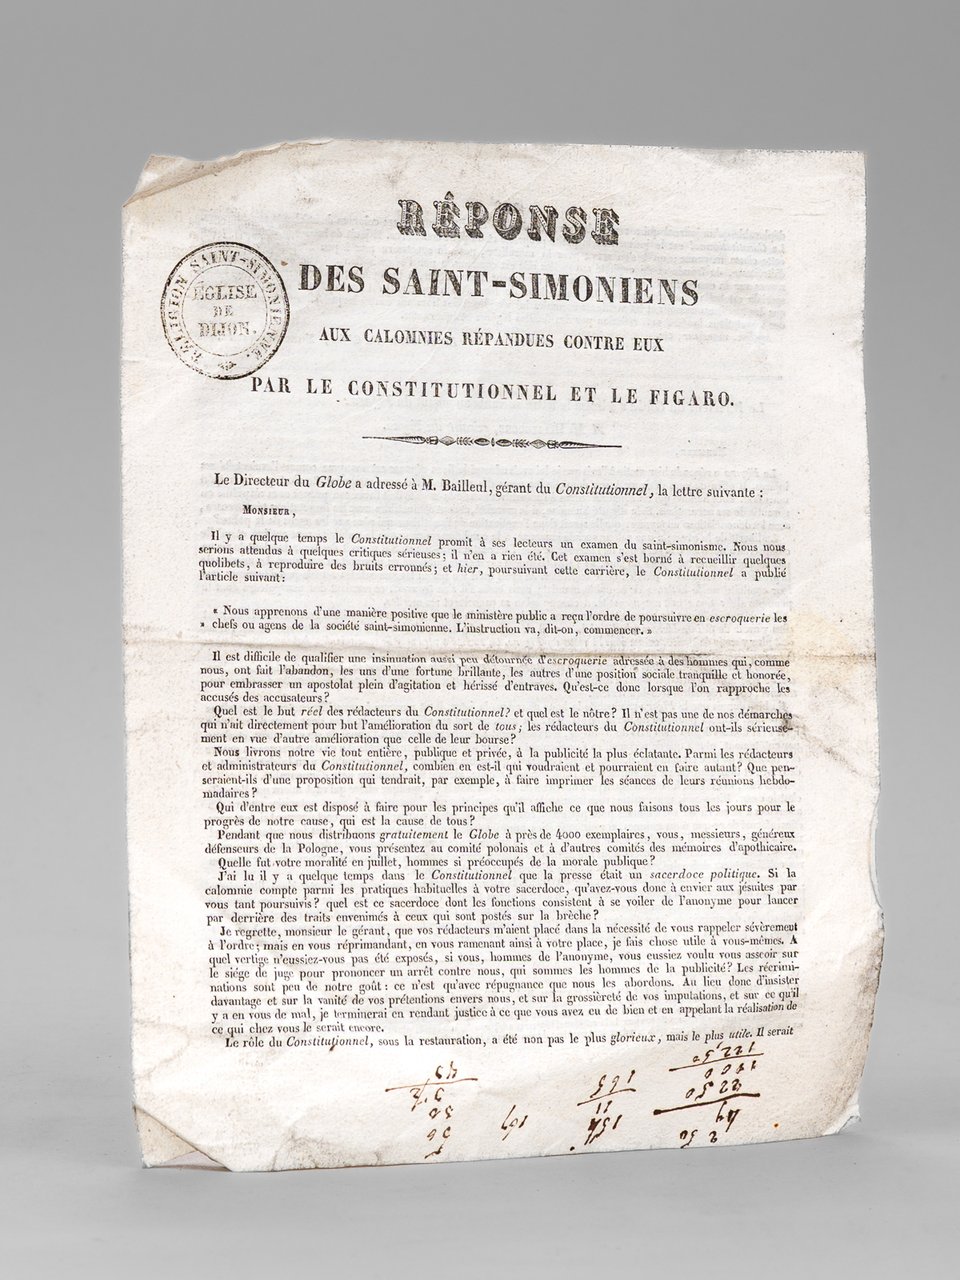 RÉPONSE
DES SAINT-SIMONIENS
AUX CALOMNIES RÉPANDUES CONTRE EUX
PAR LE CONSTITUTIONNEL ET LE FIGARO.
RELIGION SAINT-SIMONIENNE.
ÉGLISE
DE
DIJON.
Le Directeur du Globe a adressé à M. Bailleul, gérant du Constitutionnel, la lettre suivante :
MONSIEUR,
Il y a quelque temps le Constitutionnel promit à ses lecteurs un examen du saint-simonisme. Nous nous
serions attendus à quelques critiques sérieuses; il n'en a rien été. Cet examen s'est borné à recueillir quelques
quolibets, à reproduire des bruits erronnés; et hier, poursuivant cette carrière, le Constitutionnel a publié
l'article suivant:
« Nous apprenons d'une manière positive que le ministère public a reçu l'ordre de poursuivre en escroquerie les
» chefs ou agens de la société saint-simonienne. L'instruction va, dit-on, commencer. »
Il est difficile de qualifier une insinuation aussi peu détournée d'escroquerie adressée à des hommes qui, comme
nous, ont fait l'abandon, les uns d'une fortune brillante, les autres d'une position sociale tranquille et honorée,
pour embrasser un apostolat plein d'agitation et hérissé d'entraves. Qu'est-ce donc lorsque l'on rapproche les
accusés des accusateurs?
Quel est le but réel des rédacteurs du Constitutionnel? et quel est le nôtre? Il n'est pas une de nos démarches
qui n'ait directement pour but l'amélioration du sort de tous; les rédacteurs du Constitutionnel ont-ils sérieuse-
ment en vue d'autre amélioration que celle de leur bourse?
Nous livrons notre vie tout entière, publique et privée, à la publicité la plus éclatante. Parmi les rédacteurs
et administrateurs du Constitutionnel, combien en est-il qui voudraient et pourraient en faire autant? Que pen-
seraient-ils d'une proposition qui tendrait, par exemple, à faire imprimer les séances de leurs réunions hebdo-
madaires?
Qui d'entre eux est disposé à faire pour les principes qu'il affiche ce que nous faisons tous les jours pour le
progrès de notre cause, qui est la cause de tous?
Pendant que nous distribuons gratuitement le Globe à près de 4000 exemplaires, vous, messieurs, généreux
défenseurs de la Pologne, vous présentez au comité polonais et à d'autres comités des mémoires d'apothicaire.
Quelle fut votre moralité en juillet, hommes si préoccupés de la morale publique?
J'ai lu il y a quelque temps dans le Constitutionnel que la presse était un sacerdoce politique. Si la
calomnie compte parmi les pratiques habituelles à votre sacerdoce, qu'avez-vous donc à envier aux jésuites par
vous tant poursuivis? quel est ce sacerdoce dont les fonctions consistent à se voiler de l'anonyme pour lancer
par derrière des traits envenimés à ceux qui sont postés sur la brèche?
Je regrette, monsieur le gérant, que vos rédacteurs m'aient placé dans la nécessité de vous rappeler sévèrement
à l'ordre; mais en vous réprimandant, en vous ramenant ainsi à votre place, je fais chose utile à vous-mêmes. A
quel vertige n'eussiez-vous pas été exposés, si vous, hommes de l'anonyme, vous eussiez voulu vous asseoir sur
le siége de juge pour prononcer un arrêt contre nous, qui sommes les hommes de la publicité? Les récrimi-
nations sont peu de notre goût : ce n'est qu'avec répugnance que nous les abordons. Au lieu donc d'insister
davantage et sur la vanité de vos prétentions envers nous, et sur la grossièreté de vos imputations, et sur ce qu'il
y a en vous de mal, je terminerai en rendant justice à ce que vous avez eu de bien et en appelant la réalisation de
ce qui chez vous le serait encore.
Le rôle du Constitutionnel, sous la restauration, a été non pas le plus glorieux, mais le plus utile. Il serait